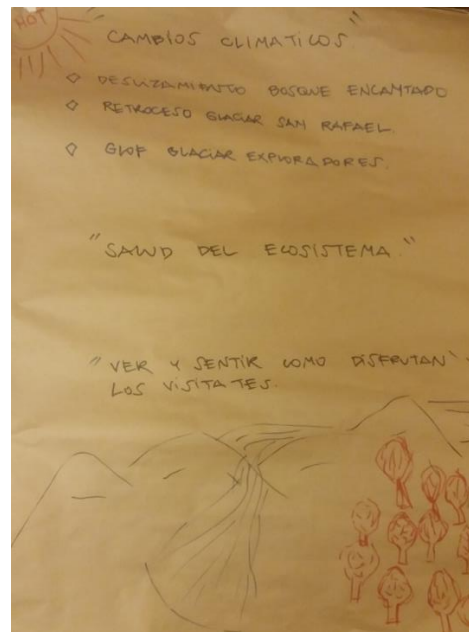 HOT
"CAMBIOS CLIMATICOS"
◇ DESLIZAMIENTO BOSQUE ENCANTADO
◇ RETROCESO GLACIAR SAN RAFAEL.
◇ GLOF GLACIAR EXPLORADORES.
"SALUD DEL ECOSISTEMA."
"VER Y SENTIR COMO DISFRUTAN"
LOS VISITATES.